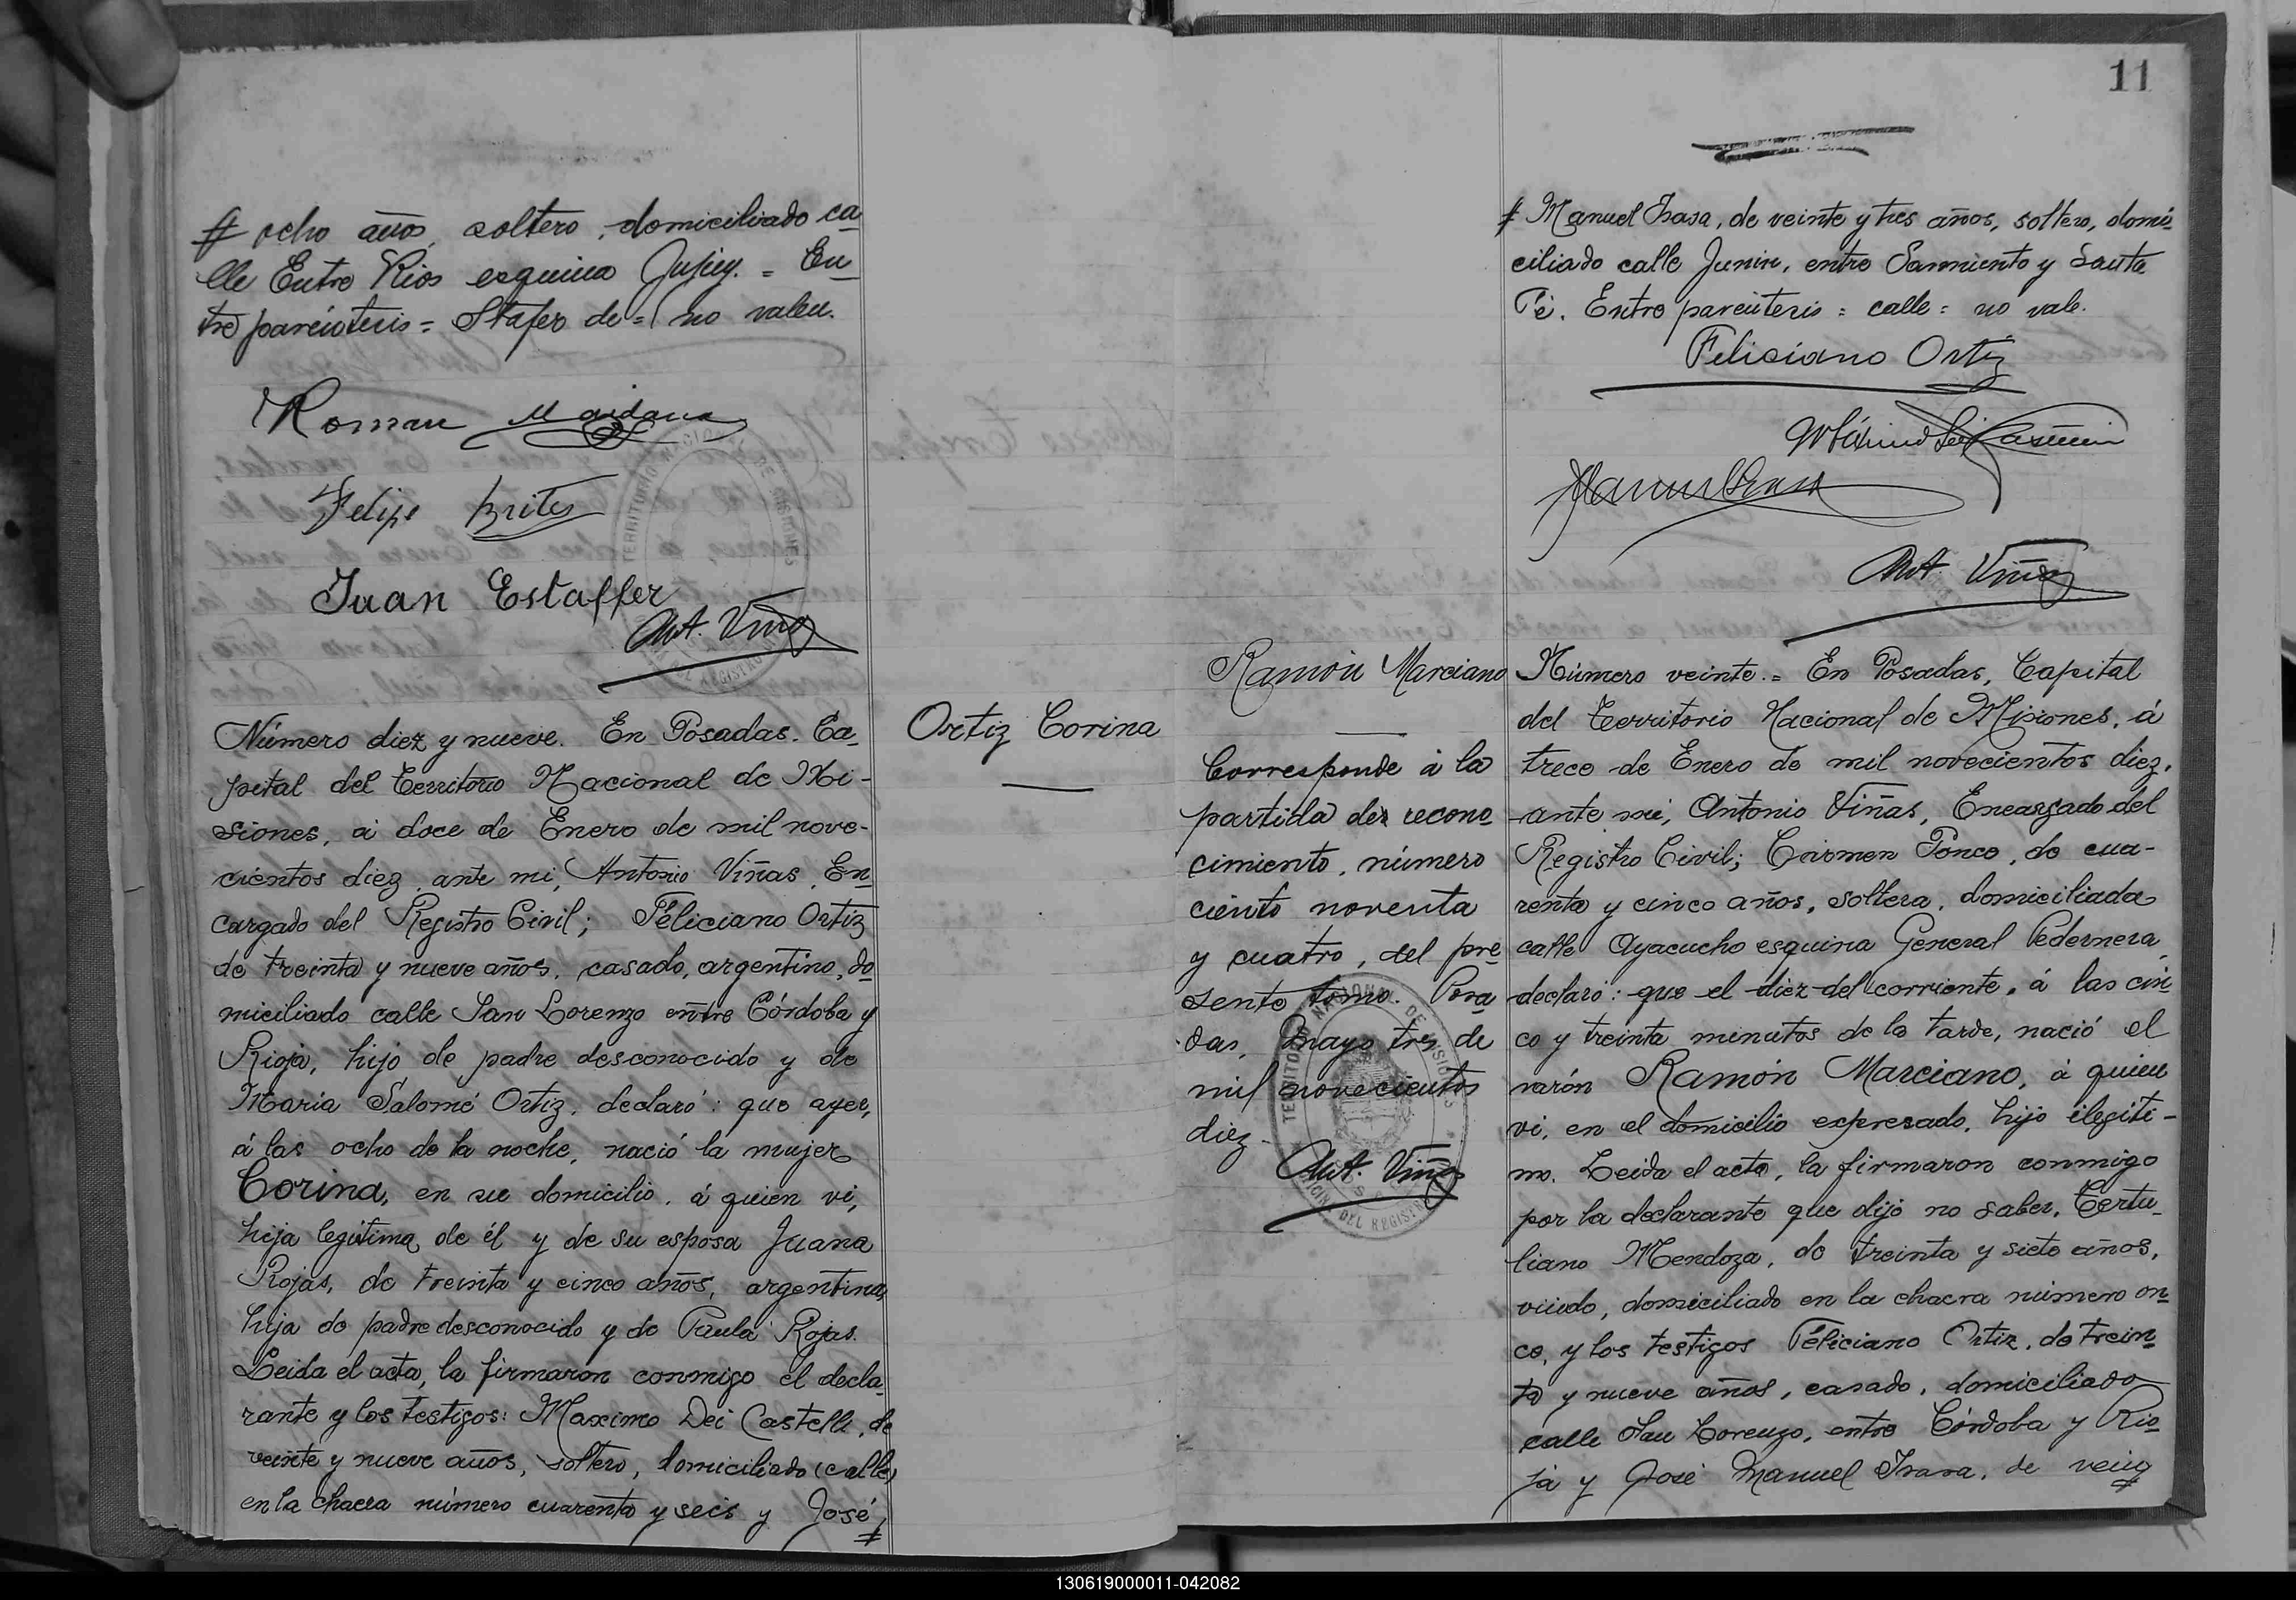 # ocho años, soltero, domiciliado ca
lle Entre Rios esquina Jujuy. = En
tre parentesis = Stafer de = no valen.
Roman Maidana
Felipe Brites
Juan Estaffer
Ant. Viñas
Número diez y nueve. En Posadas, Ca-
pital del Territorio Nacional de Mi-
siones, á doce de Enero de mil nove-
cientos diez, ante mi, Antonio Viñas, En
cargado del Registro Civil; Feliciano Ortiz
de treinta y nueve años, casado, argentino, do
miciliado calle San Lorenzo entre Córdoba y
Rioja, hijo de padre desconocido y de
Maria Salomé Ortiz, declaró: que ayer,
á las ocho de la noche, nació la mujer
Corina, en su domicilio, á quien vi,
hija legítima de él y de su esposa Juana
Rojas, de treinta y cinco años, argentina,
hija de padre desconocido y de Paula Rojas.
Leida el acta, la firmaron conmigo el decla
rante y los testigos: Maximo Dei Castelli, de
veinte y nueve años, soltero, domiciliado (calle)
en la chacra número cuarenta y seis y José
#
Ortiz Corina
11
# Manuel Isasa, de veinte y tres años, soltero, domi
ciliado calle Junin, entre Sarmiento y Santa
Fé. Entre parentesis = calle = no vale.
Feliciano Ortiz
Ant. Viñas
Ramón Marciano
Corresponde á la
partida de recono
cimiento, número
ciento noventa
y cuatro, del pre
sente tomo. Posa
das, Mayo tres de
mil novecientos
diez.
Ant. Viñas
TERRITORIO NACIONAL DE MISIONES
Número veinte. = En Posadas, Capital
del Territorio Nacional de Misiones, á
trece de Enero de mil novecientos diez,
ante mi, Antonio Viñas, Encargado del
Registro Civil; Carmen Ponce, de cua-
renta y cinco años, soltera, domiciliada
calle Ayacucho esquina General Pedernera,
declaró: que el diez del corriente, á las cin
co y treinta minutos de la tarde, nació el
varón Ramón Marciano, á quien
vi, en el domicilio expresado, hijo ilegiti-
mo. Leida el acta, la firmaron conmigo
por la declarante que dijo no saber, Tertu-
liano Mendoza, de treinta y siete años,
viudo, domiciliado en la chacra número on
ce, y los testigos Feliciano Ortiz, de trein
ta y nueve años, casado, domiciliado
calle San Lorenzo, entre Córdoba y Rio
ja y José Manuel Isasa, de vein
#
130619000011-042082